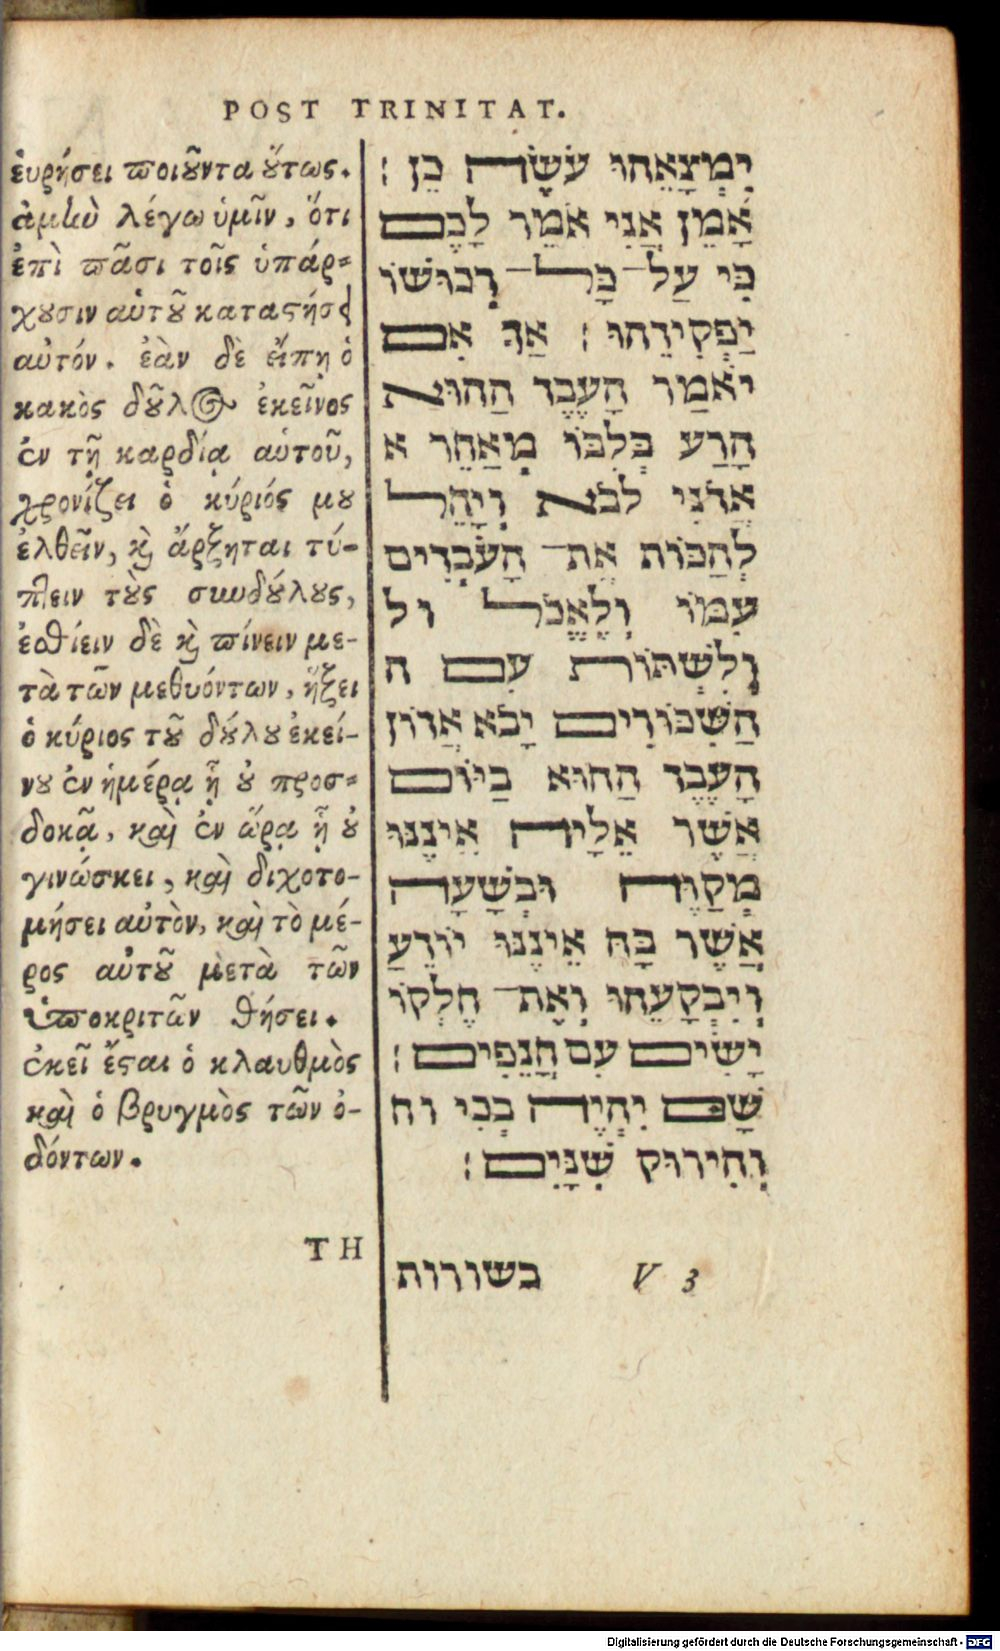 POST TRINITAT.
ἑυρήσει ϖοιοῦντα ȣ̔́τως.
ἀμὴν λέγω ὑμῖν, ὅτι
ἐπὶ ϖᾶσι τοῖς ὑπάρ=
χȣσιν αὑτȣ͂ καταϛήσει
αὐτόν. ἐὰν δὲ εἴπῃ ὁ
κακὸς δȣ͂λος ἐκεῖνος
ἐν τῇ καρδίᾳ αὑτοῦ,
χρονίζει ὁ κύριός μȣ
ἐλθεῖν, καὶ ἄρξηται τύ-
πτειν τȣ̀ς συνδȣ́λȣς,
ἐσθίειν δὲ καὶ ϖίνειν με-
τὰ τῶν μεθυόντων, ἥξει
ὁ κύριος τȣ͂ δȣ́λȣ ἐκεί-
νȣ ἐν ἡμέρᾳ ᾗ ȣ̓ προσ=
δοκᾷ, καὶ ἐν ὥρᾳ ᾗ ȣ̓
γινώσκει, καὶ διχοτο-
μήσει αὐτὸν, καὶ τὸ μέ-
ρος αὐτȣ͂ μετὰ τῶν
ὑϖοκριτῶν θήσει.
ἐκεῖ ἔϛαι ὁ κλαυθμὸς
καὶ ὁ βρυγμὸς τῶν ὀ-
δόντων.
ΤΗ
יִמְצָאֵהוּ עֹשֶׂה כֵן :
אָמֵן אֲנִי אֹמֵר לָכֶם
כִּי עַל־ כָּל־ רְכוּשׁוֹ
יַפְקִידֵהוּ : אַךְ אִם
יֹאמַר הָעֶבֶד הַהוּא
הָרַע בְּלִבּוֹ מְאַחֵר א
אֲדֹנִי לבֹא וְיָהֵל
לְהַכּוֹת אֶת־ הָעֹבְדִים
עִמּוֹ וְלֶאֱכֹל ול
וְלִשְׁתּוֹת עִם ה
הַשִּׁכּוֹרִים יָבֹא אֲדוֹן
הָעֶבֶד הַהוּא בַיּוֹם
אֲשֶׁר אֵלָיה אֵינֶנּוּ
מְקַוֶּה וּבְשָׁעָה
אֲשֶׁר בָּהּ אֵינֶנּוּ יוֹדֵעַ
וִיבְקָעֵהוּ וְאֶת־ חֶלְקוֹ
יָשִׂים עִם חֲנֵפִים :
שָׁם יִהְיֶה בְכִי וח
וְחִירוּק שִׁנָּיִם :
בשורות V 3
Digitalisierung gefördert durch die Deutsche Forschungsgemeinschaft - DFG